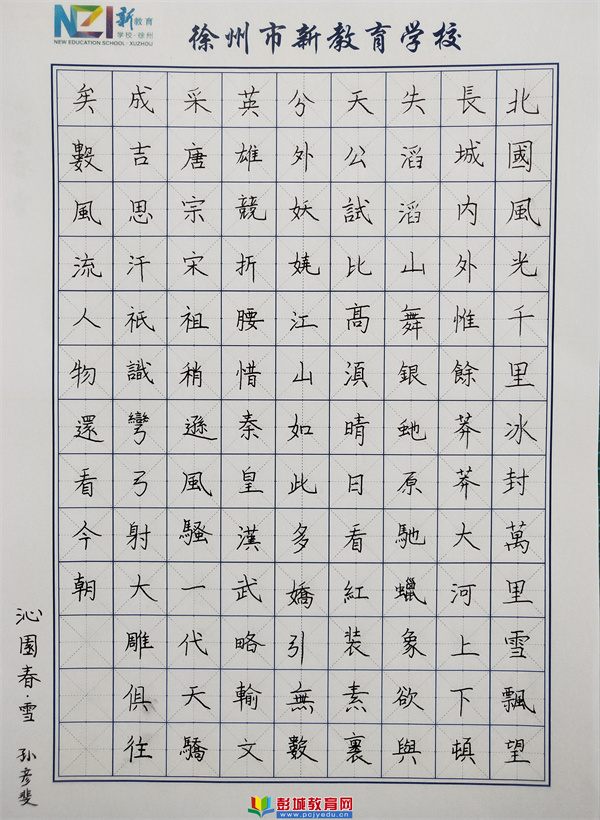 NZI 新教育
學校·徐州
NEW EDUCATION SCHOOL · XUZHOU
徐州市新教育学校
北國風光千里冰封萬里雪飄望
長城內外惟餘莽莽大河上下頓
失滔滔山舞銀虵原馳蠟象欲與
天公試比高湏晴日看紅裝素裹
分外妖嬈江山如此多嬌引無數
英雄競折腰惜秦皇漢武略輸文
采唐宗宋祖稍遜風騷一代天驕
成吉思汗祇識彎弓射大雕俱往
矣數風流人物還看今朝
沁園春·雪 孙彦斐
彭城教育网
www.pcjyedu.cn